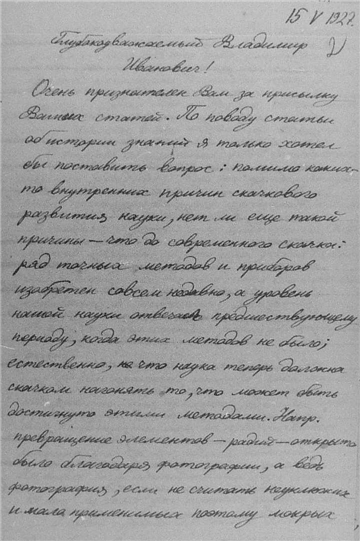 15 V 1927.
Глубокоуважаемый Владимир
Иванович!
Очень признателен Вам за присылку
Ваших статей. По поводу статьи
об истории знаний я только хотел
бы поставить вопрос: помимо каких-
то внутренних причин скачкового
развития науки, нет ли еще такой
причины — что до современного скачка:
ряд точных методов и приборов
изобретен совсем недавно, а уровень
нашей науки отвечает предшествующему
периоду, когда этих методов не было;
естественно, что наука теперь должна
скачком нагонять то, что может быть
достигнуто этими методами. Напр.
превращение элементов — радий — открыто
было благодаря фотографии, а ведь
фотография, если не считать неуклюжих
и мало применимых поэтому мокрых